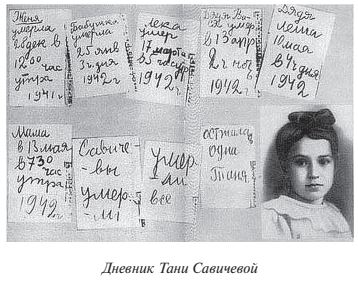 Женя
умерла
28 дек в
12.00 час
утра
1941 г
Бабушка
умерла
25 янв
3 ч. дня
1942 г
Лека
умер
17 марта
в 5 час утр
1942 г
Дядя Ва-
ся умер
в 13 апр
2 ч ноч
1942 г
Дядя
Леша
10 мая
в 4 ч дня
1942 г
Мама
в 13 мая
в 730
час
утра
1942 г
Савиче-
вы
умер-
ли
умер-
ли
все
осталась
одна
Таня
Дневник Тани Савичевой